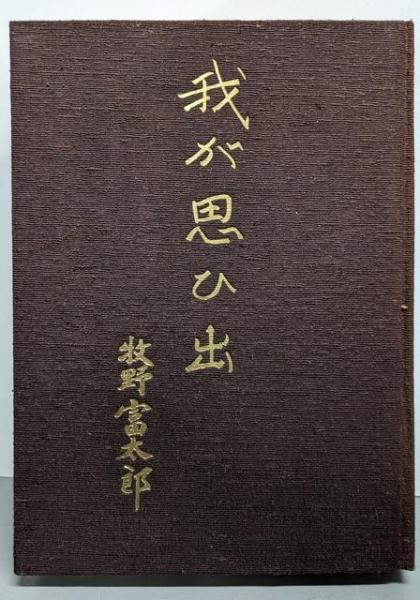 我が思ひ出
牧野富太郎